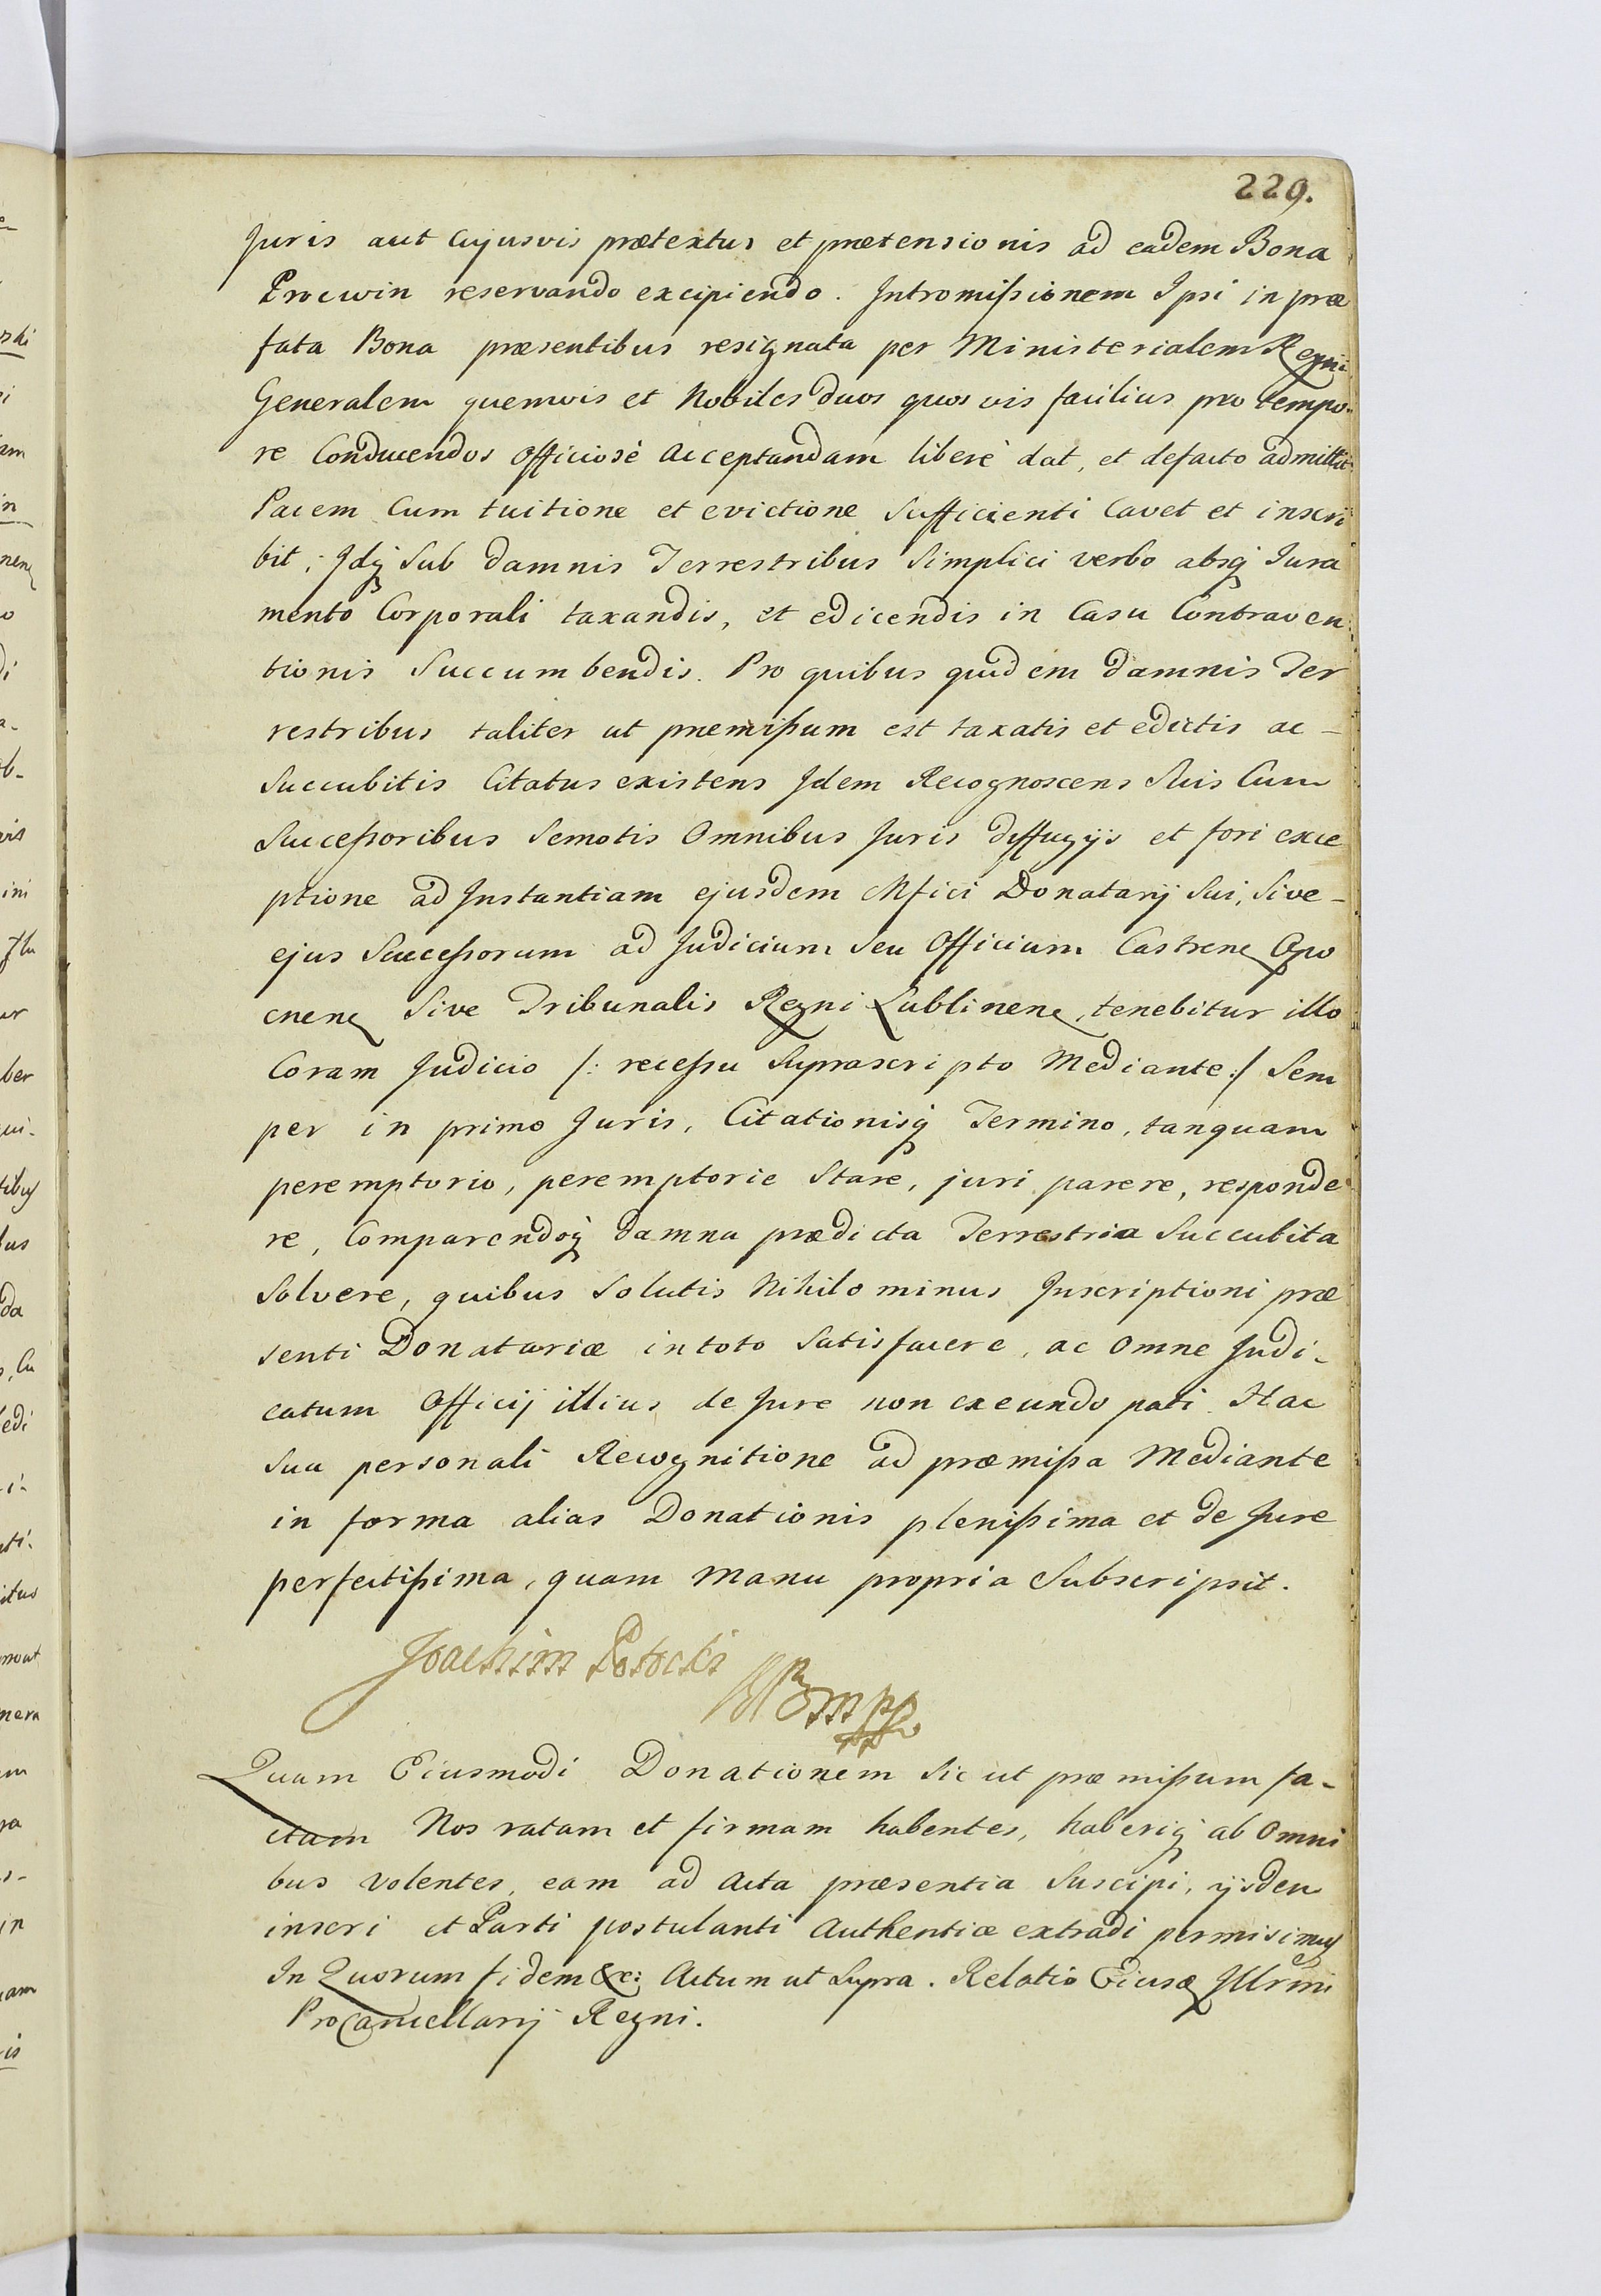 229.
Juris aut cujusvis prætextus et prætensionis ad eadem Bona
Procwin reservando excipiendo. Intromissionem Ipsi in præ
fata Bona præsentibus resignata per Ministerialem Regni
Generalem quemvis et Nobiles duos quos vis facilius pro tempo-
re Conducendos Officiosè Acceptandam liberè dat, et defacto admittit
Pacem Cum tuitione et evictione Sufficienti Cavet et inscri
bit; Idq Sub damnis Terrestribus Simplici verbo absq Jura
mento Corporali taxandis, et edicendis in Casu Contraven-
tionis Succumbendis. Pro quibus quidem damnis Ter
restribus taliter ut præmissum est taxatis et edictis ac -
Succubitis Citatus existens Idem Recognoscens Suis Cum
Successoribus Semotis Omnibus Juris diffugijs et fori exce
ptione ad Instantiam ejusdem Mfici Donatarij Sui, Sive -
ejus Successorum ad Judicium Seu Officium Castrene Opo
cnene Sive Tribunalis Regni Lublinene, tenebitur illo
Coram Judicio /: recessu Suprascripto Mediante :/ Sem
per in primo Juris, Citationisq Termino, tanquam
peremptorio, peremptorie Stare, juri parere, responde
re, Comparendoq damna prædicta Terrestria Succubita
Solvere, quibus Solutis Nihilominus Inscriptioni præ
senti Donatariæ in toto Satisfacere, ac Omne Judi-
catum Officij illius de Jure non exeundo pati. Hac
Sua personali Recognitione ad præmissa Mediante
in forma alias Donationis plenissima et de Jure
perfectissima, quam Manu propria Subscripsit.
Joachim Potocki
mpp
Quam Eiusmodi Donationem Sic ut præmissum fa-
ctam Nos ratam et firmam habentes, haberiq ab Omni
bus Volentes, eam ad Acta præsentia Suscipi, ijsdem
inscri et Parti postulanti Authentice extradi permisimus
In Quorum fidem &c: Actum ut Supra. Relatio Eiusd Illrmi
ProCancellarij Regni.